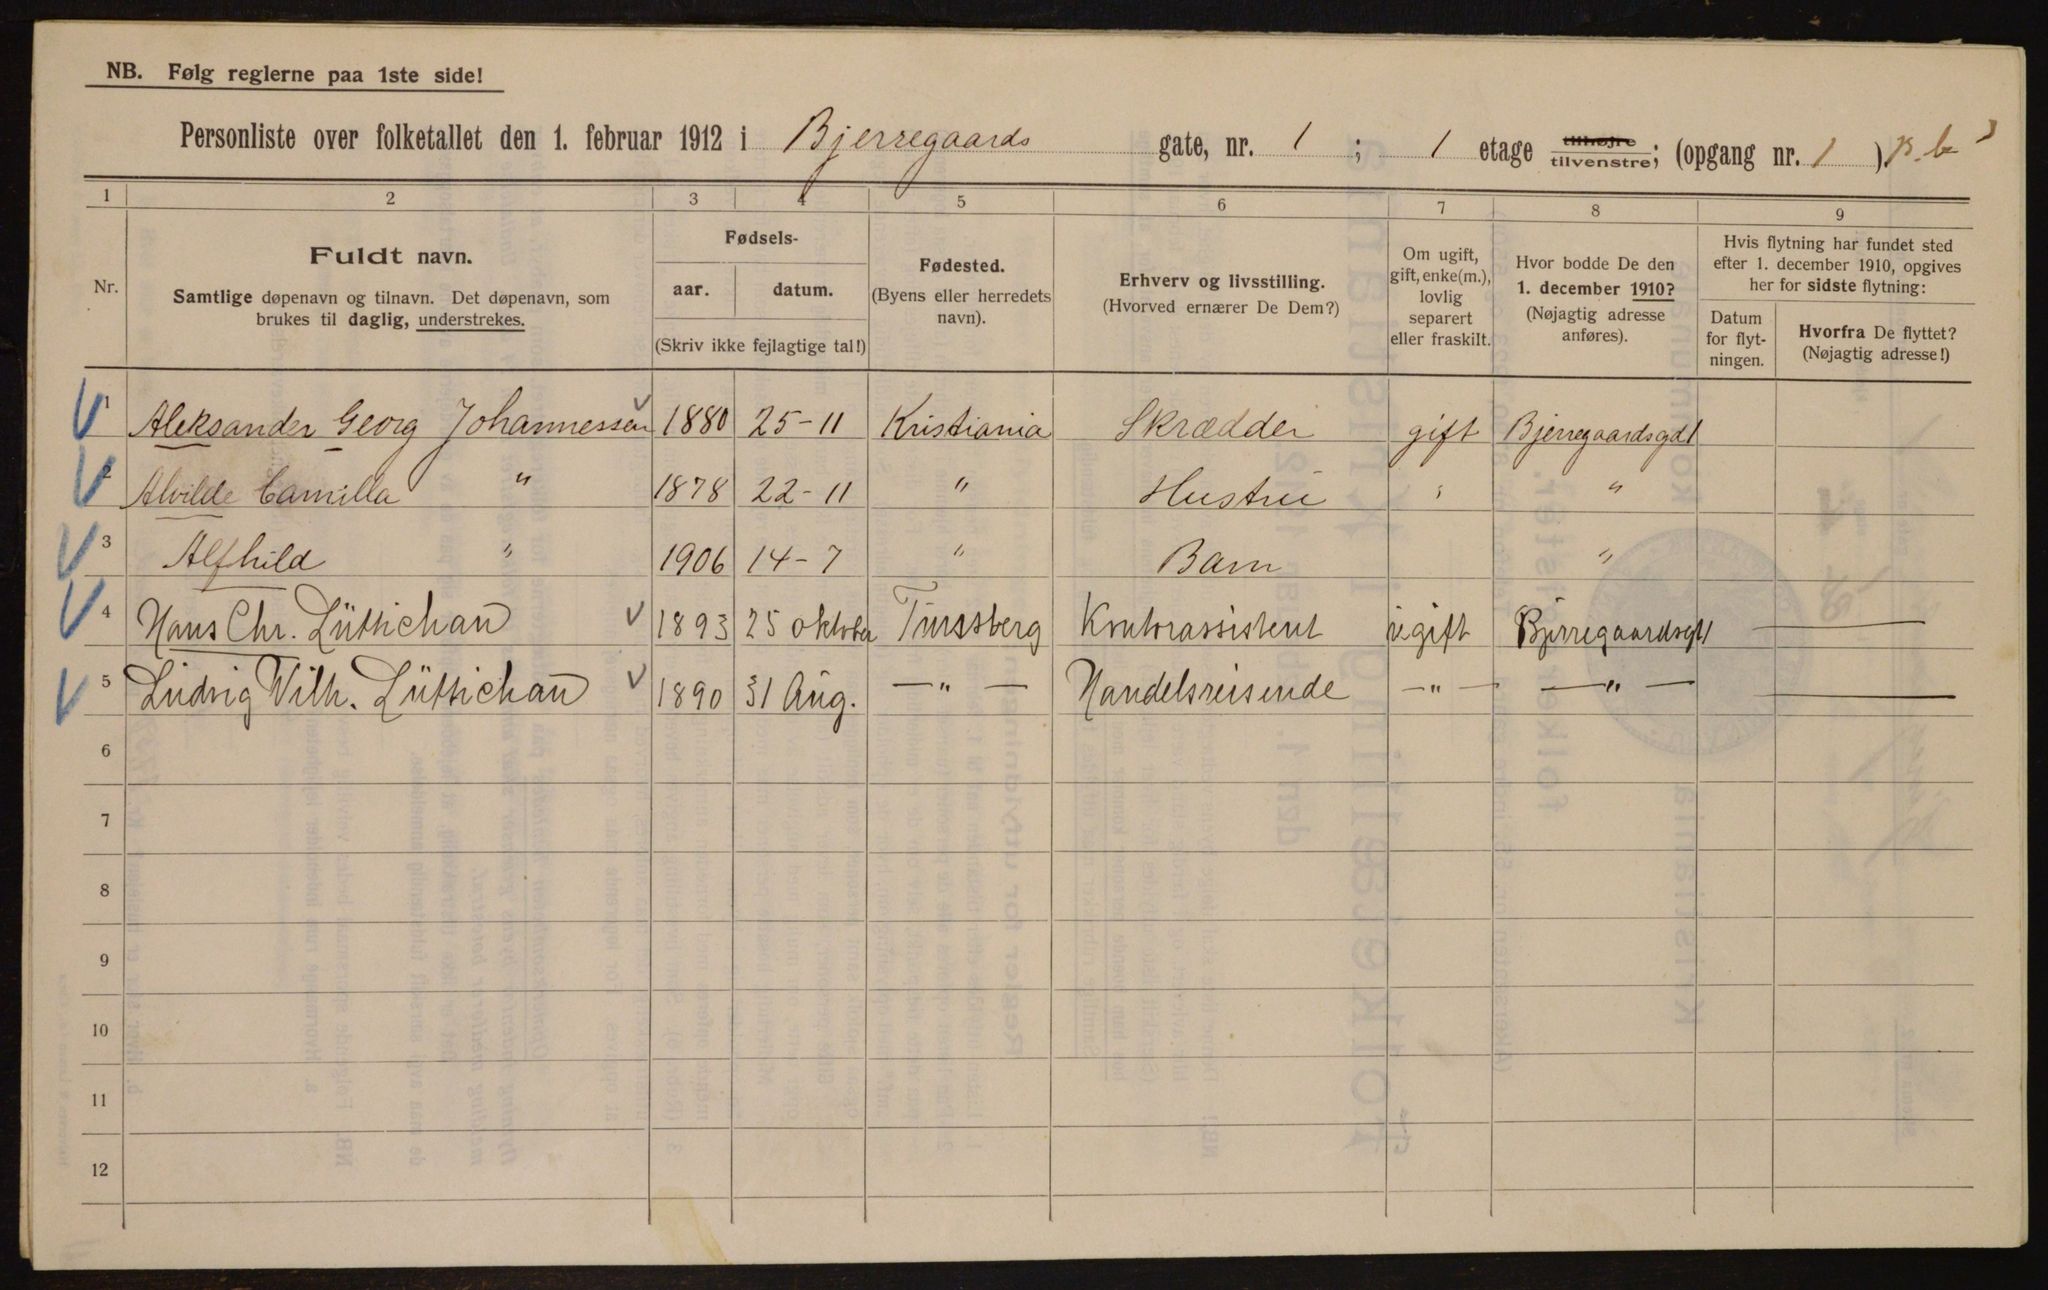 NB. Følg reglerne paa 1ste side!
Personliste over folketallet den 1. februar 1912 i Bjerregaards gate, nr. 1 ; 1 etage tilhøjre tilvenstre; (opgang nr. 1 ).
1 2 3 4 5 6 7 8 9
Nr.
Fuldt navn.
Samtlige døpenavn og tilnavn. Det døpenavn, som
brukes til daglig, understrekes.
Fødsels-
aar. datum.
(Skriv ikke fejlagtige tal!)
Fødested.
(Byens eller herredets
navn).
Erhverv og livsstilling.
(Hvorved ernærer De Dem?)
Om ugift,
gift, enke(m.),
lovlig
separert
eller fraskilt.
Hvor bodde De den
1. december 1910?
(Nøjagtig adresse
anføres).
Hvis flytning har fundet sted
efter 1. december 1910, opgives
her for sidste flytning:
Datum
for flyt-
ningen.
Hvorfra De flyttet?
(Nøjagtig adresse!)
1 Aleksander Georg Johannessen 1880 25-11 Kristiania Skrædder gift Bjerregaardsgd 1
2 Alvilde Camilla " 1878 22-11 " Hustru " "
3 Alfhild " 1906 14-7 " Barn "
4 Hans Chr. Lüttichau 1893 25 oktober Tunsberg Kontorassistent ugift Bjerregaardsgt 1 —
5 Ludvig Wilh. Lüttichau 1890 31 Aug. —"— Handelsreisende —"— —"— —
6
7
8
9
10
11
12